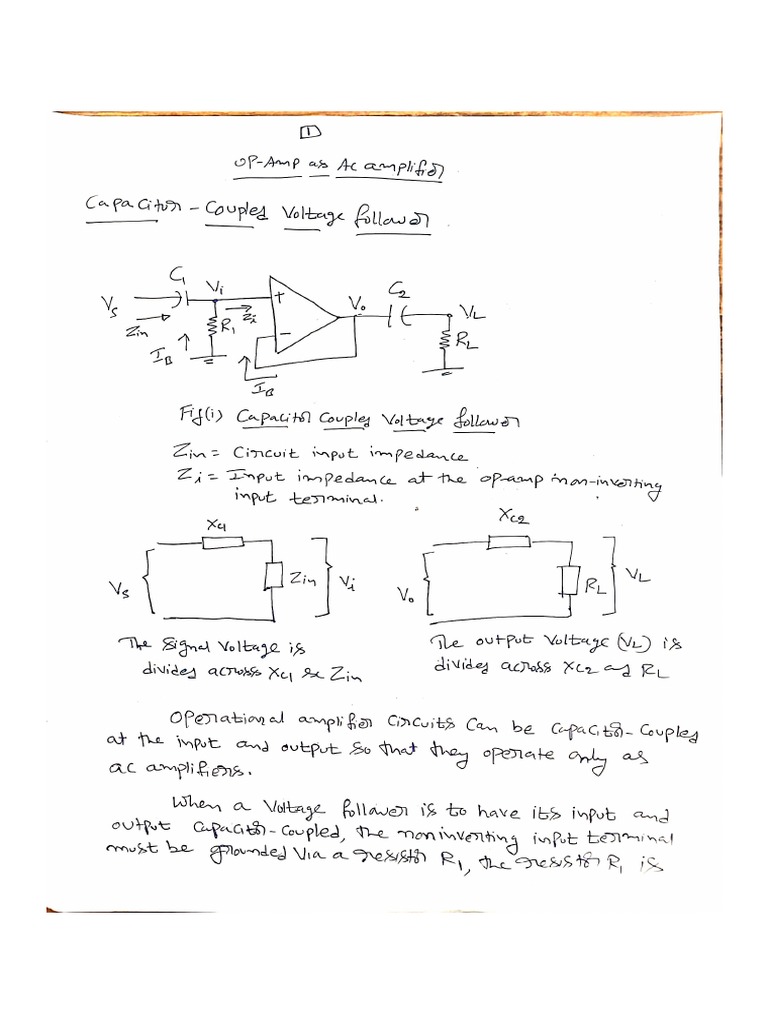 1
OP-Amp as Ac amplifier
Capacitor - Coupled Voltage follower
C1
Vi
Vs
Zin
R1
Zi
IB
+
-
Vo
C2
VL
RL
IB
Fig(i) Capacitor Coupled Voltage follower
Zin = Circuit input impedance
Zi = Input impedance at the op-amp non-inverting
input terminal.
XC1
Vs
Zin
Vi
XC2
Vo
RL
VL
The signal voltage is
divided across XC1 & Zin
The output Voltage (VL) is
divided across XC2 and RL
Operational amplifier circuits can be capacitor-coupled
at the input and output so that they operate only as
ac amplifiers.
When a Voltage follower is to have its input and
output capacitor-coupled, the noninverting input terminal
must be grounded via a resistor R1, the resistor R1 is